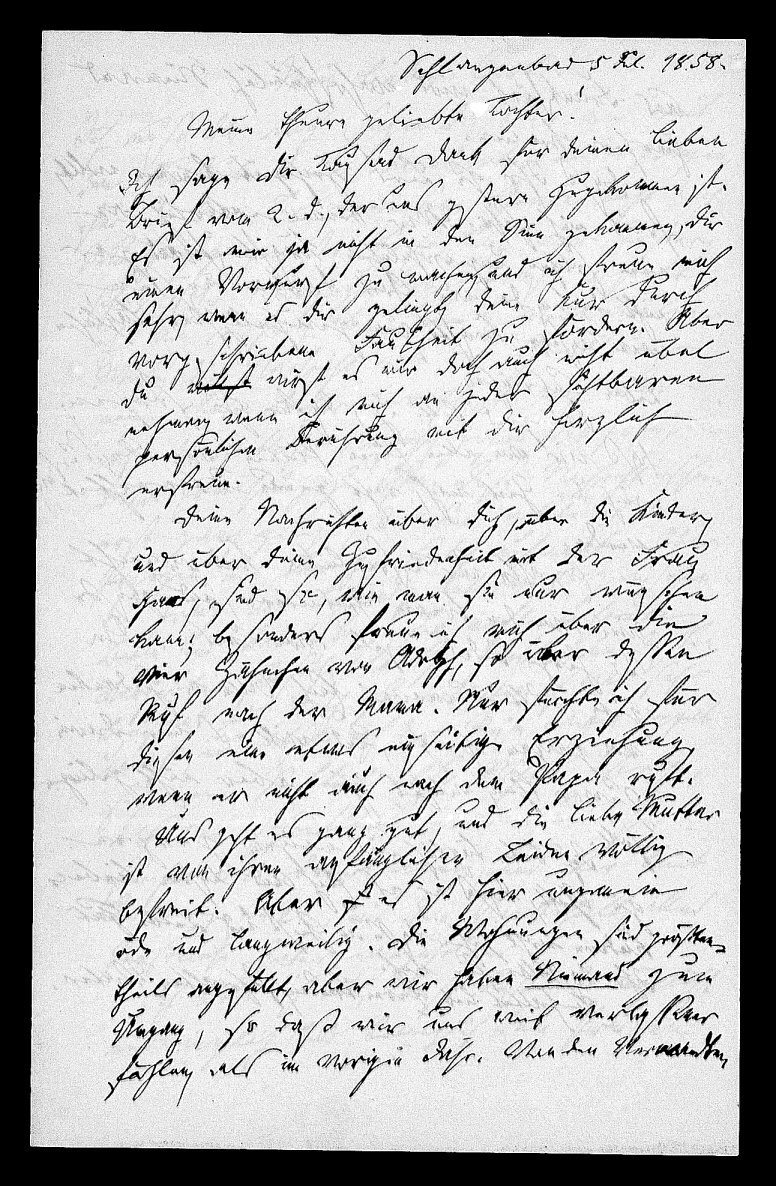 Schlangenbad 5 Jul. 1858.
Meine theure geliebte Tochter!
Ich sage dir Tausend Dank für deinen lieben
Brief vom 2. d., der uns gestern zugekommen ist.
Es ist mir ja nicht in den Sinn gekommen, dir
einen Vorwurf zu machen, und ich freue mich
sehr, wenn es dir gelingt, deine Kur durch
vorgeschriebene Faulheit zu fördern. Aber
du wirst es mir doch auch nicht übel
nehmen, wenn ich mich an jeder sichtbaren
persönlichen Berührung mit dir herzlich
erfreue.
Deine Nachrichten über dich, über die Kinder
und über deine Zufriedenheit mit der Frau
sind so, wie man sie nur wünschen
kann; besonders freue ich mich über die
vier Zähnchen von Adolph, so über dessen
Ruf nach der Mama. Nur fürchte ich für
diesen eine etwas einseitige Erziehung,
wenn er nicht auch nach dem Papa ruft.
Uns geht es ganz gut, und die liebe Mutter
ist von ihren anfänglichen Leiden völlig
befreit. Aber es ist hier ungemein
öde und langweilig. Die Wohnungen sind größten-
theils angefüllt, aber wir haben Niemand zum
Umgang, so daß wir uns weit verlassener
fühlen, als im vorigen Jahr. Von den Verwandten,